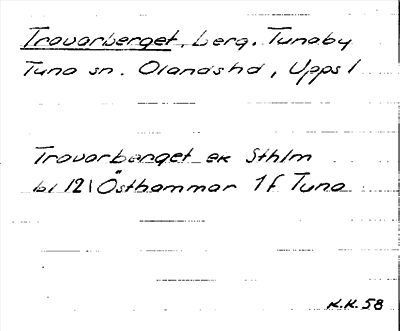 Travarberget, berg. Tunaby
Tuna sn. Olandshd, Upps l
Travarberget ek Sthlm
bl 121 Östhammar 1f Tuna
K.K. 58